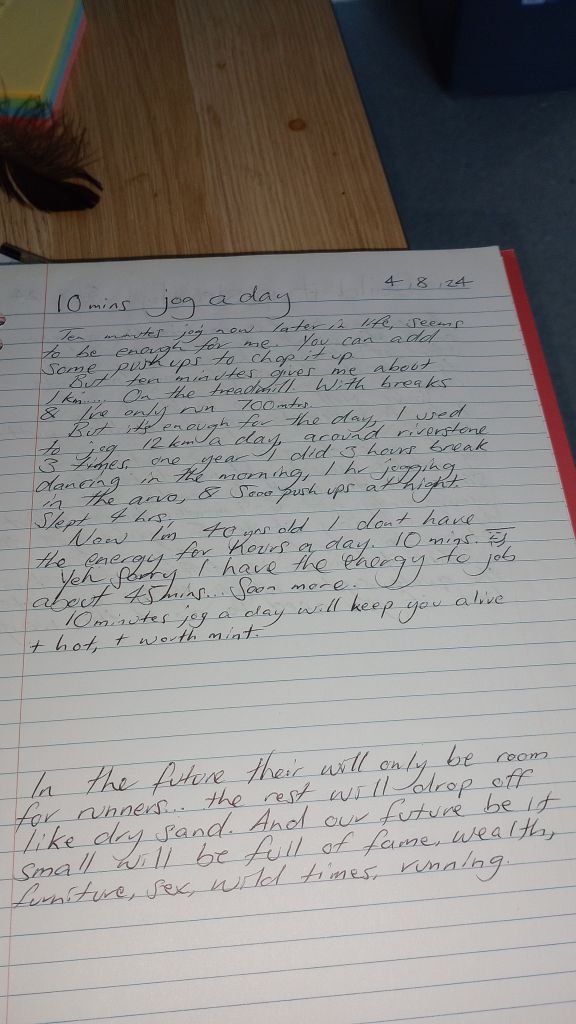 4.8.24
10 mins jog a day
Ten minutes jog now later in life, seems
to be enough for me. You can add
some push ups to chop it up.
But ten minutes gives me about
1 km.... On the treadmill. With breaks
& I've only run 700mtrs.
But it's enough for the day, I used
to jog 12 km a day, around riverstone
3 times, one year I did 3 hours break
dancing in the morning, 1 hr jogging
in the arvo, & 5000 push ups at night.
Slept 4 hrs.
Now I'm 40 yrs old I dont have
the energy for hours a day. 10 mins.
Yeh sorry I have the energy to job
about 45 mins... Soon more.
10 minutes jog a day will keep you alive
+ hot, + worth mint.
In the future their will only be room
for runners... the rest will drop off
like dry sand. And our future be it
small will be full of fame, wealth,
furniture, sex, wild times, running.